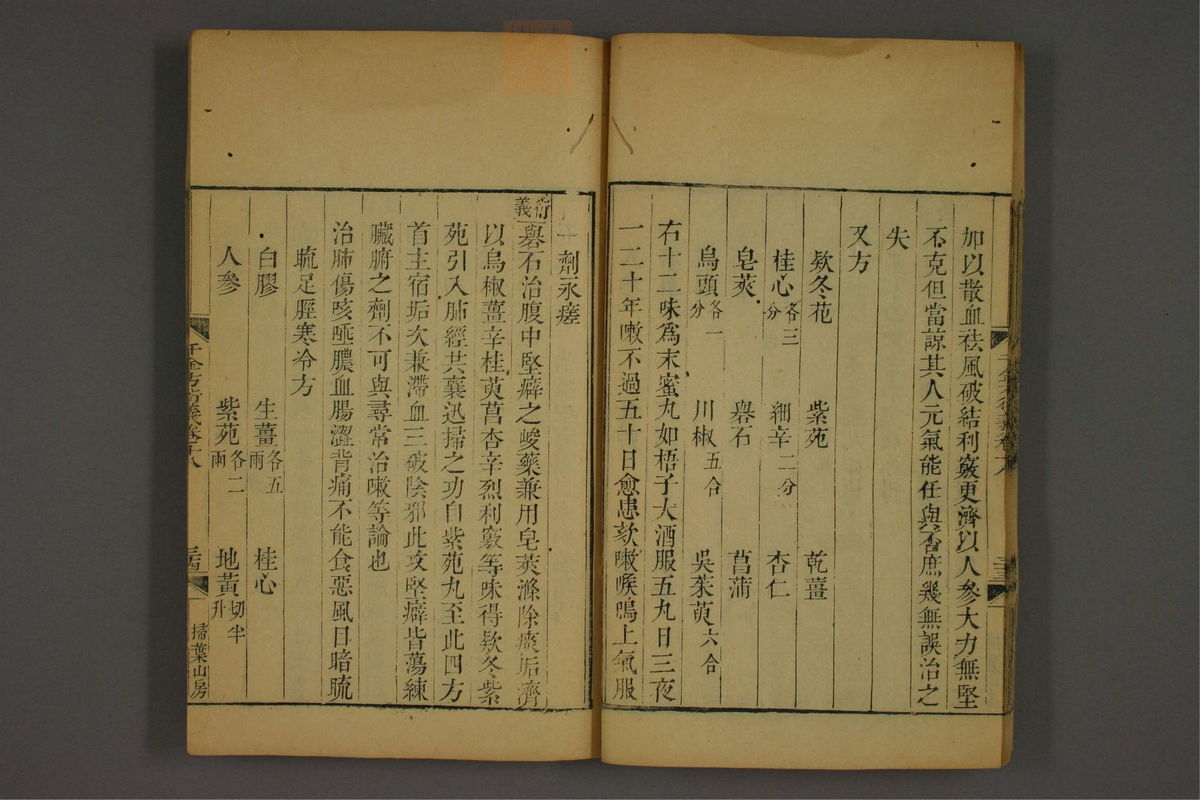 加以散血祛風破結利竅更濟以人參大力無堅
不克但當諒其人元氣能任與否庶幾無誤治之
失
又方
欵冬花 紫苑 乾薑
桂心各三分 細辛二分 杏仁
皂莢 礜石 菖蒲
烏頭各一分 川椒五合 吳茱萸六合
右十二味為末蜜丸如梧子大酒服五丸日三夜
一二十年嗽不過五十日愈患欬嗽喉鳴上氣服
一劑永瘥
衍義 礜石治腹中堅癖之峻藥兼用皂莢滌除痰垢濟
以烏椒薑辛桂萸菖杏辛烈利竅等味得欵冬紫
苑引入肺經共襄迅掃之功自紫苑丸至此四方
首主宿垢次兼滯血三破陰邪此攻堅癖皆蕩練
臟腑之劑不可與尋常治嗽等論也
治肺傷咳唾膿血腸澀背痛不能食惡風目暗䀮
䀮足脛寒冷方
白膠 生薑各五兩 桂心
人參 紫苑各二兩 地黃切半升
千金方衍義卷十八
掃葉山房